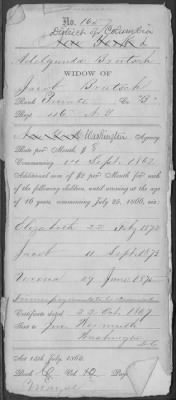 No. 162
District of Columbia
Adelgunda Bentsch
WIDOW OF
Jacob Bentsch
Rank Private Co "B"
Regt 46 N.Y.
Washington Agency
Rate per Month, $8
Commencing 1st Sept. 1862
Additional sum of $2 per Month for each
of the following children, until arriving at the age
of 16 years, commencing July 25, 1866, viz:
Elizabeth 22 July 1872
Jacob 11 Sept. 1873
Verona 29 June 1876
Certificate dated 22 Oct. 1867
Sent to
Washington
D.C.
Act 14th July, 1862.
Book Vol. Page